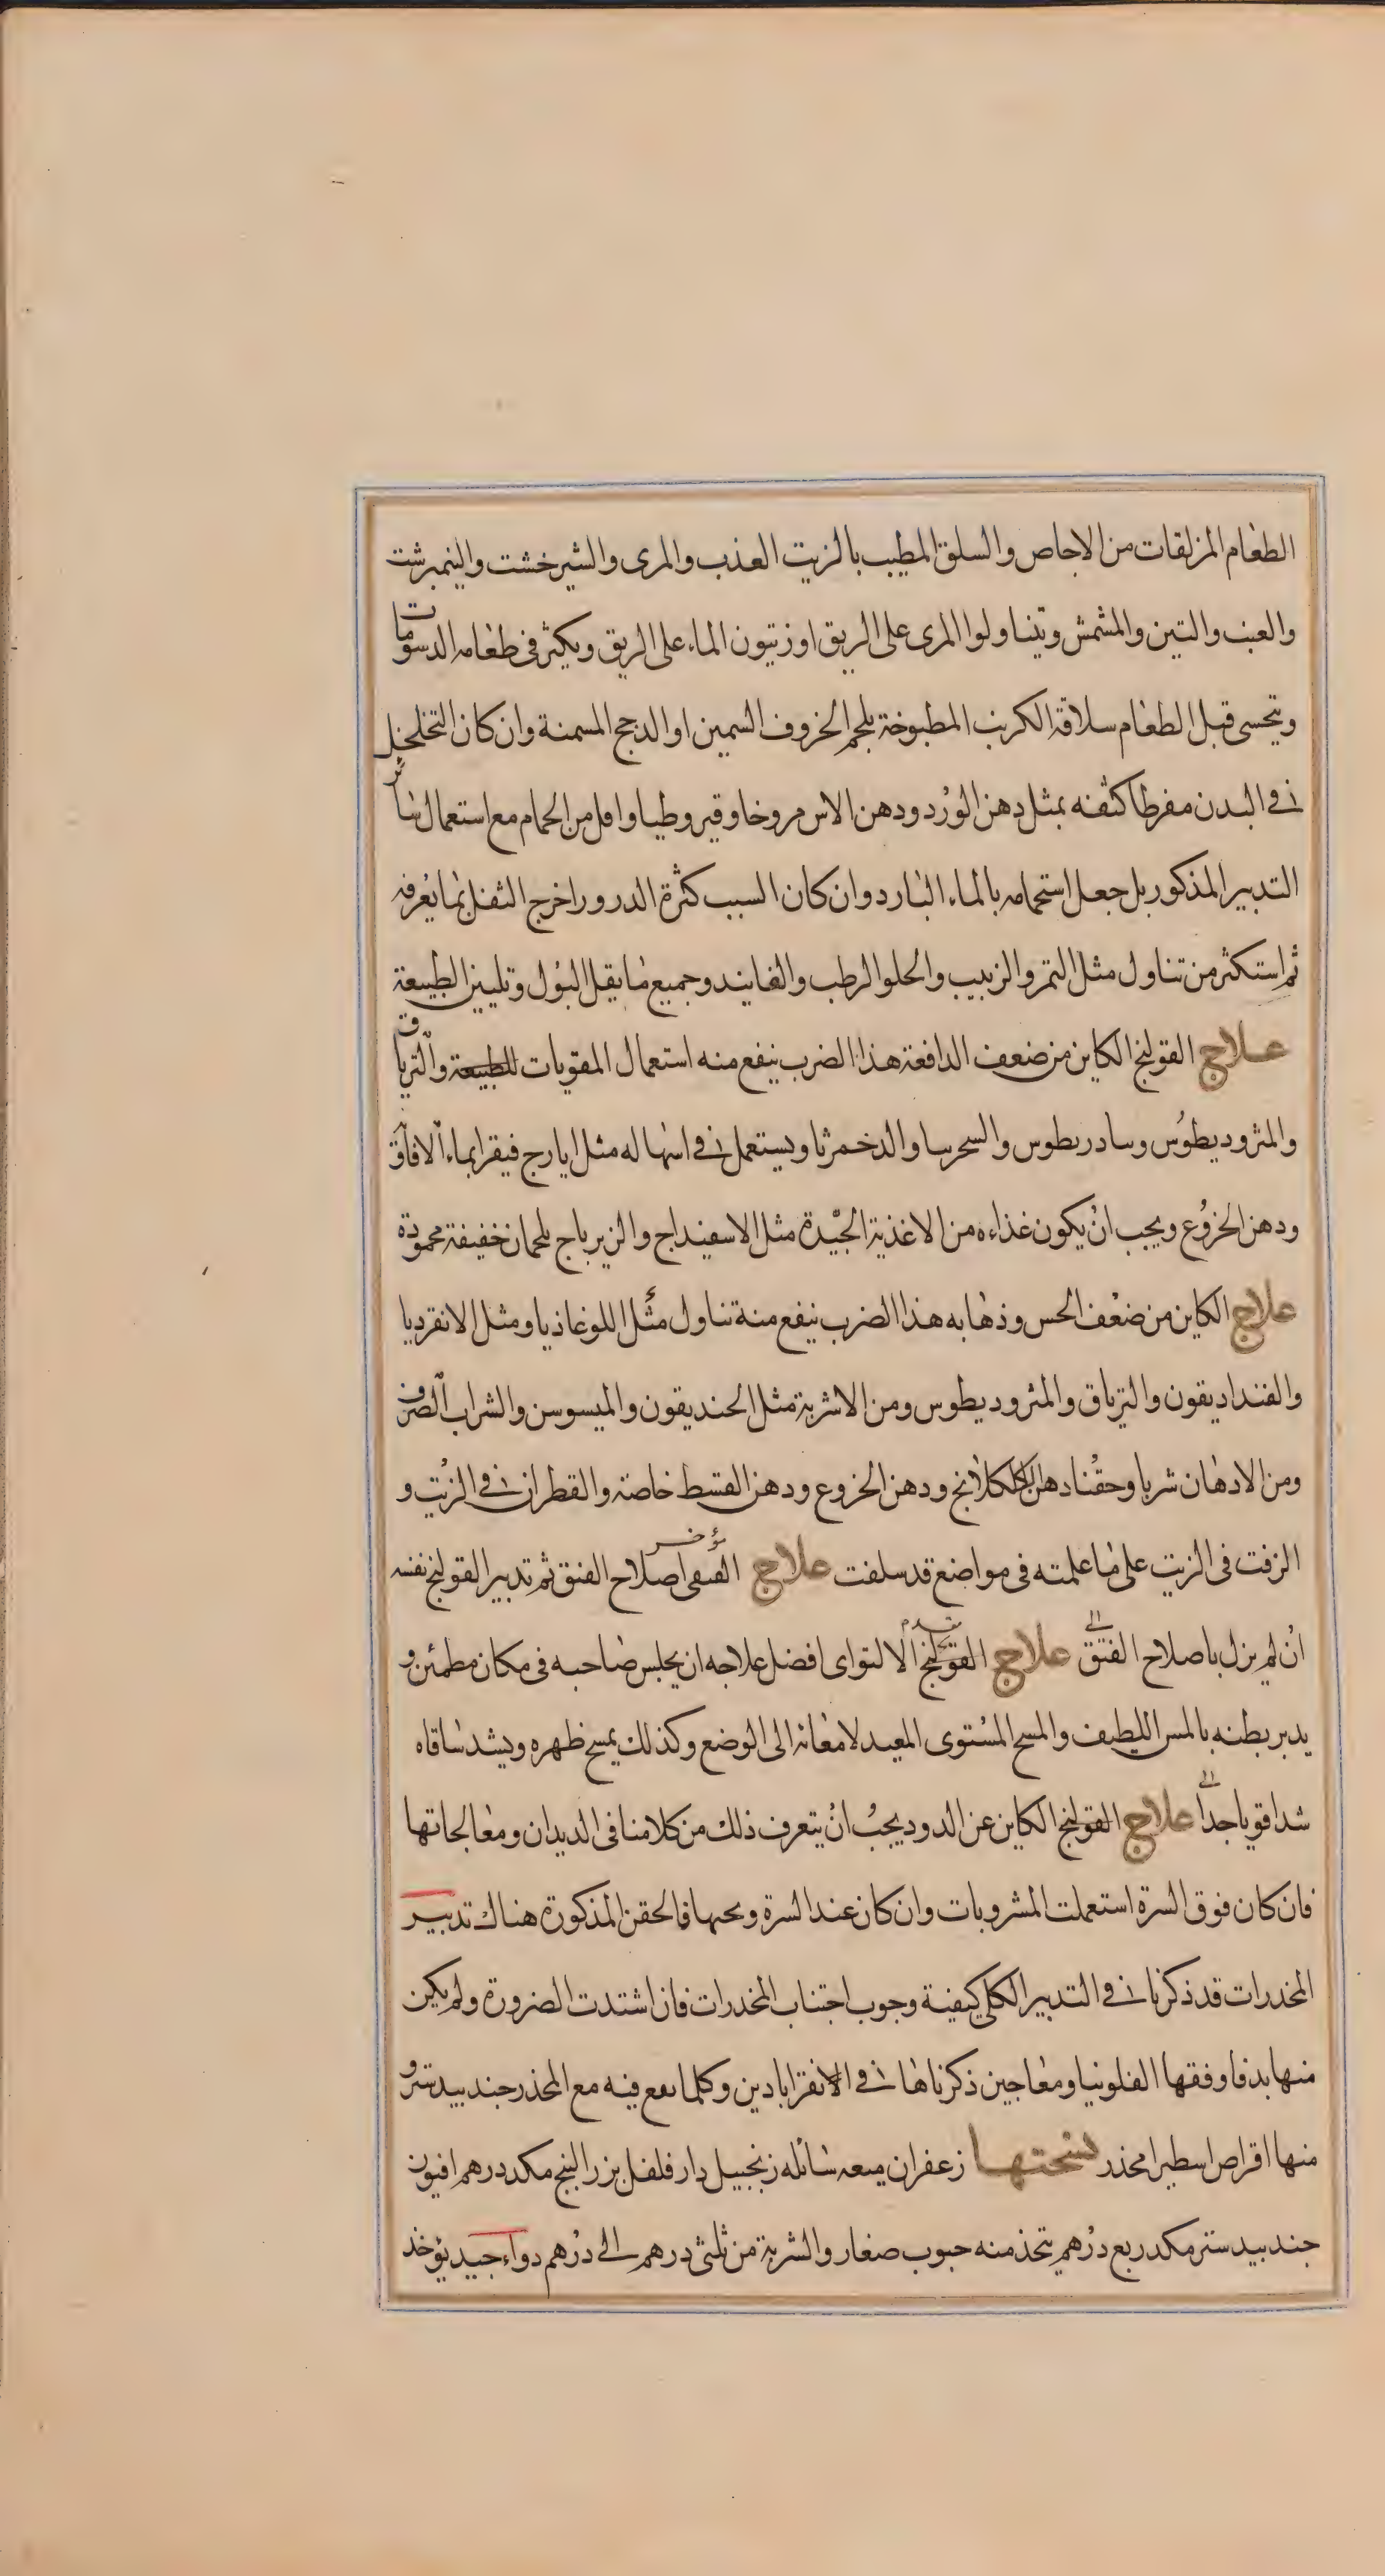 الطعام المزلقات من الاجاص والسلق المطيب بالزيت العذب والمرى والشيرخشت والنيمبرشت
والعنب والتين والمشمش ويتناولوا المرى على الريق او زيتون الماء على الريق ويكثر فى طعامه الدسومات
ويتحسى قبل الطعام سلاقة الكرنب المطبوخة بلحم الخروف السمين او الدجج المسمنة وان كان التخلخل
فى البدن مفرطا كثفنه بمثل دهن الورد ودهن الاس مروخا وقيروطيا واقل من الحمام مع استعمال سائر
التدبير المذكور بل جعل استحمامه بالماء البارد وان كان السبب كثرة الدرور اخرج الثفل بما يعرفه
ثم استكثر من تناول مثل التمر والزبيب والحلو الرطب والفانيد وجميع ما يقل البول وتليين الطبيعة
علاج القولنج الكاين من ضعف الدافعة هذا الضرب ينفع منه استعمال المقويات للطبيعة والترياق
والمثروديطوس وسادريطوس والسحرسا والدحمرثا ويستعمل فى اسهاله مثل ايارج فيقرا بماء الافاق
ودهن الخروع ويجب ان يكون غذاءه من الاغذية الجيدة مثل الاسفيداج والزيرباج بلحمان خفيفة محمودة
علاج الكاين من ضعف الحس وذهابه هذا الضرب ينفع منه تناول مثل اللوغاذيا ومثل الانقرديا
والفنداديقون والترياق والمثروديطوس ومن الاشربة مثل الحنديقون والميسوسن والشراب الصرف
ومن الادهان شربا وحقنا دهن الكلكلانج ودهن الخروع ودهن القسط خاصة والقطران فى الزيت و
الزفت فى الزيت على ما علمته فى مواضع قد سلفت علاج الفتقى مؤخر اصلاح الفتق ثم تدبير القولنج نفسه
ان لم يزل باصلاح الفتق الى علاج القولنج مقدم الالتواى افضل علاجه ان يجلس صاحبه فى مكان مطمئن و
يدبر بطنه بالمس اللطيف والمسح المستوى المعيد لامعائه الى الوضع وكذلك يمسح ظهره ويشد ساقاه
شدا قويا جدا الى علاج القولنج الكاين عن الدود يجب ان يتعرف ذلك من كلامنا فى الديدان ومعالجاتها
فان كان فوق السرة استعملت المشروبات وان كان عند السرة وتحتها فالحقن المذكورة هناك تدبير
المخدرات قد ذكرنا فى التدبير الكلى كيفية وجوب اجتناب المخدرات فان اشتدت الضرورة ولم يكن
منها بد فاوفقها الفلونيا ومعاجين ذكرناها فى الانقراباذين وكلما يقع فيه مع المخدر جندبيدستر و
منها اقراص اسطيرا محذر نسختها زعفران ميعه سائله زنجبيل دارفلفل بزر البنج مكد درهم افيون
جندبيدستر مكد ربع درهم يتخذ منه حبوب صغار والشربة من ثلثى درهم الى درهم دواء جيد يؤخذ